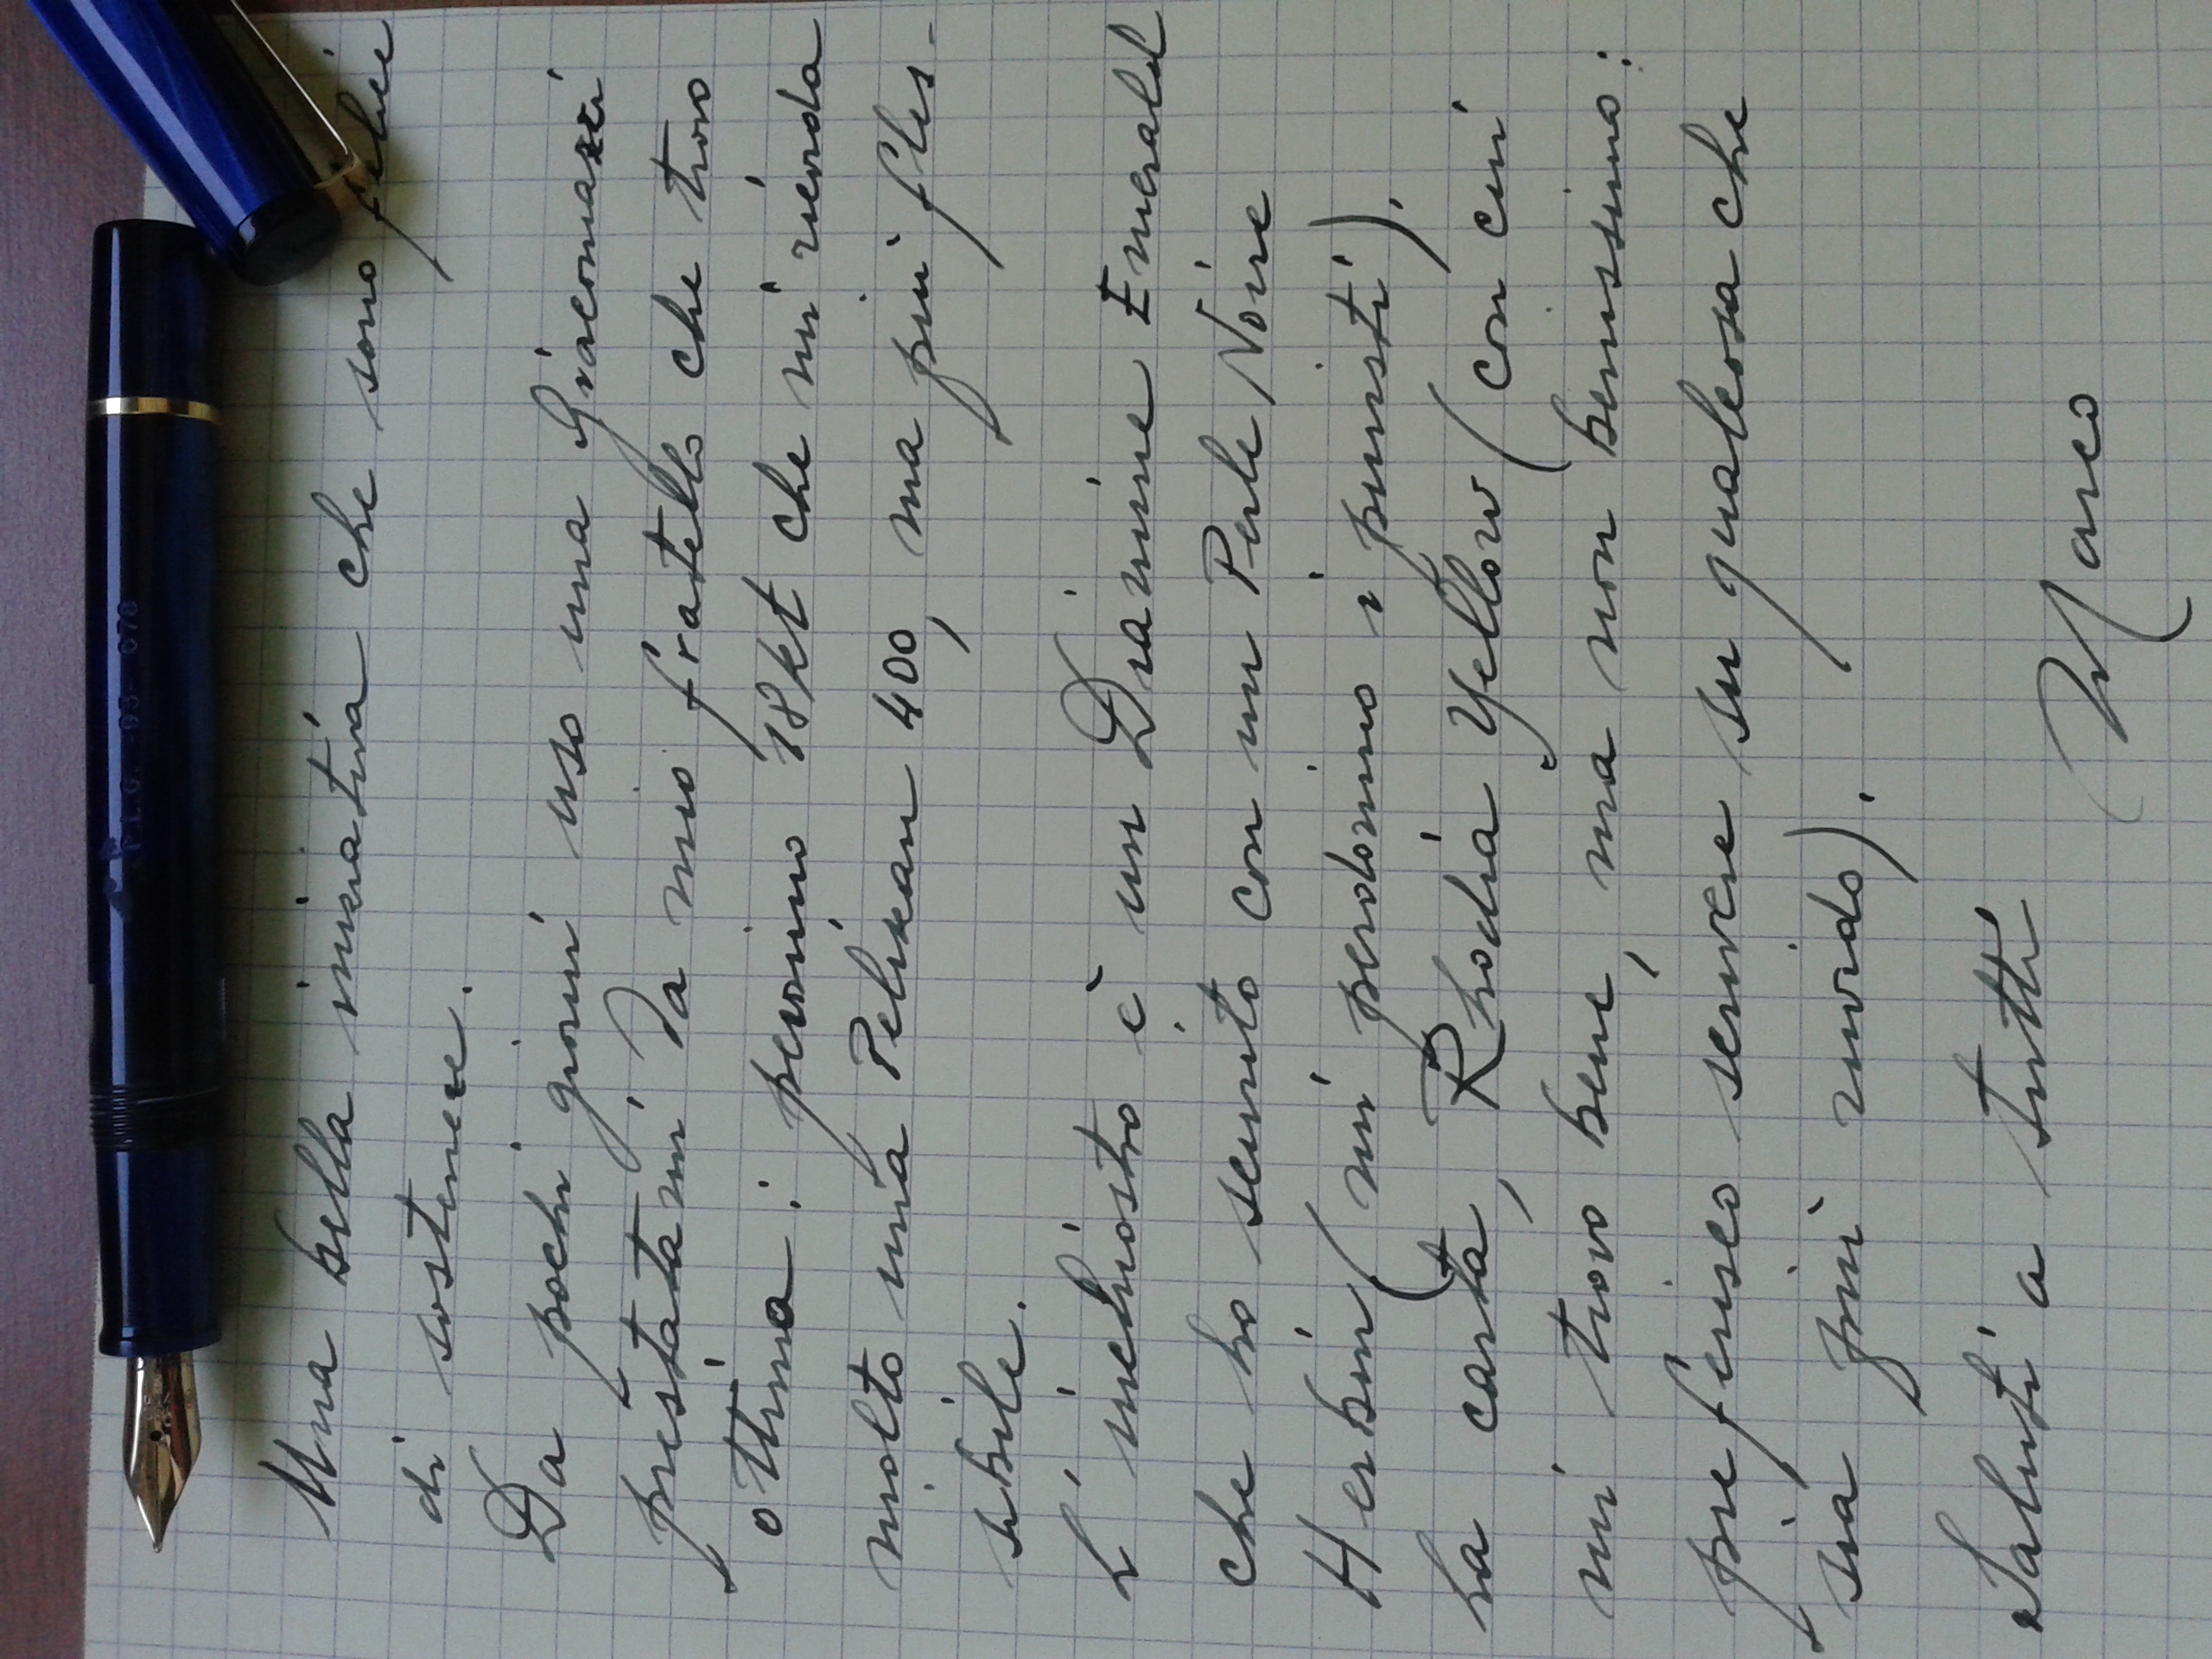 Una bella iniziativa che sono felice
di sostenere.
Da pochi giorni uso una Giacomazzi
prestatami da mio fratello che trovo
ottima: pennino 18kt che mi ricorda
molto mia Pelikan 400, ma più fles-
sibile.
L'inchiostro è un Diamine Emerald
che ho scurito con un Perle Noire
Herbin (mi perdonino i puristi).
La carta, Rhodia Yellow (con cui
mi trovo bene, ma non benissimo:
preferisco scrivere su qualcosa che
sia più ruvido).
Saluti a tutti
Marco